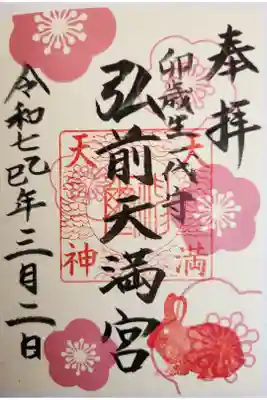 奉拝
卯歳生一代守
弘前天満宮
令和七乙巳年三月二日
天満
天神